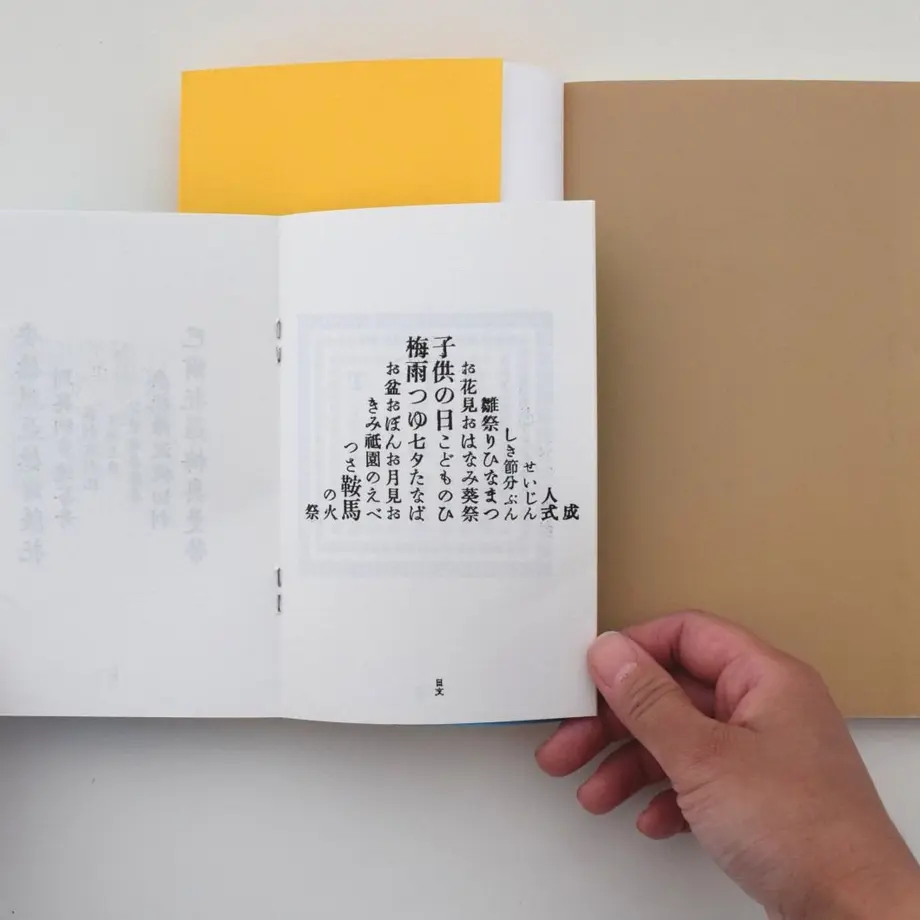 成
人式
せいじん
しき節分ぶん
雛祭りひなまつ
お花見おはなみ葵祭
子供の日こどものひ
梅雨つゆ七夕たなば
お盆おぼんお月見お
きみ祇園のえべ
つさ鞍馬
の火
祭
日文